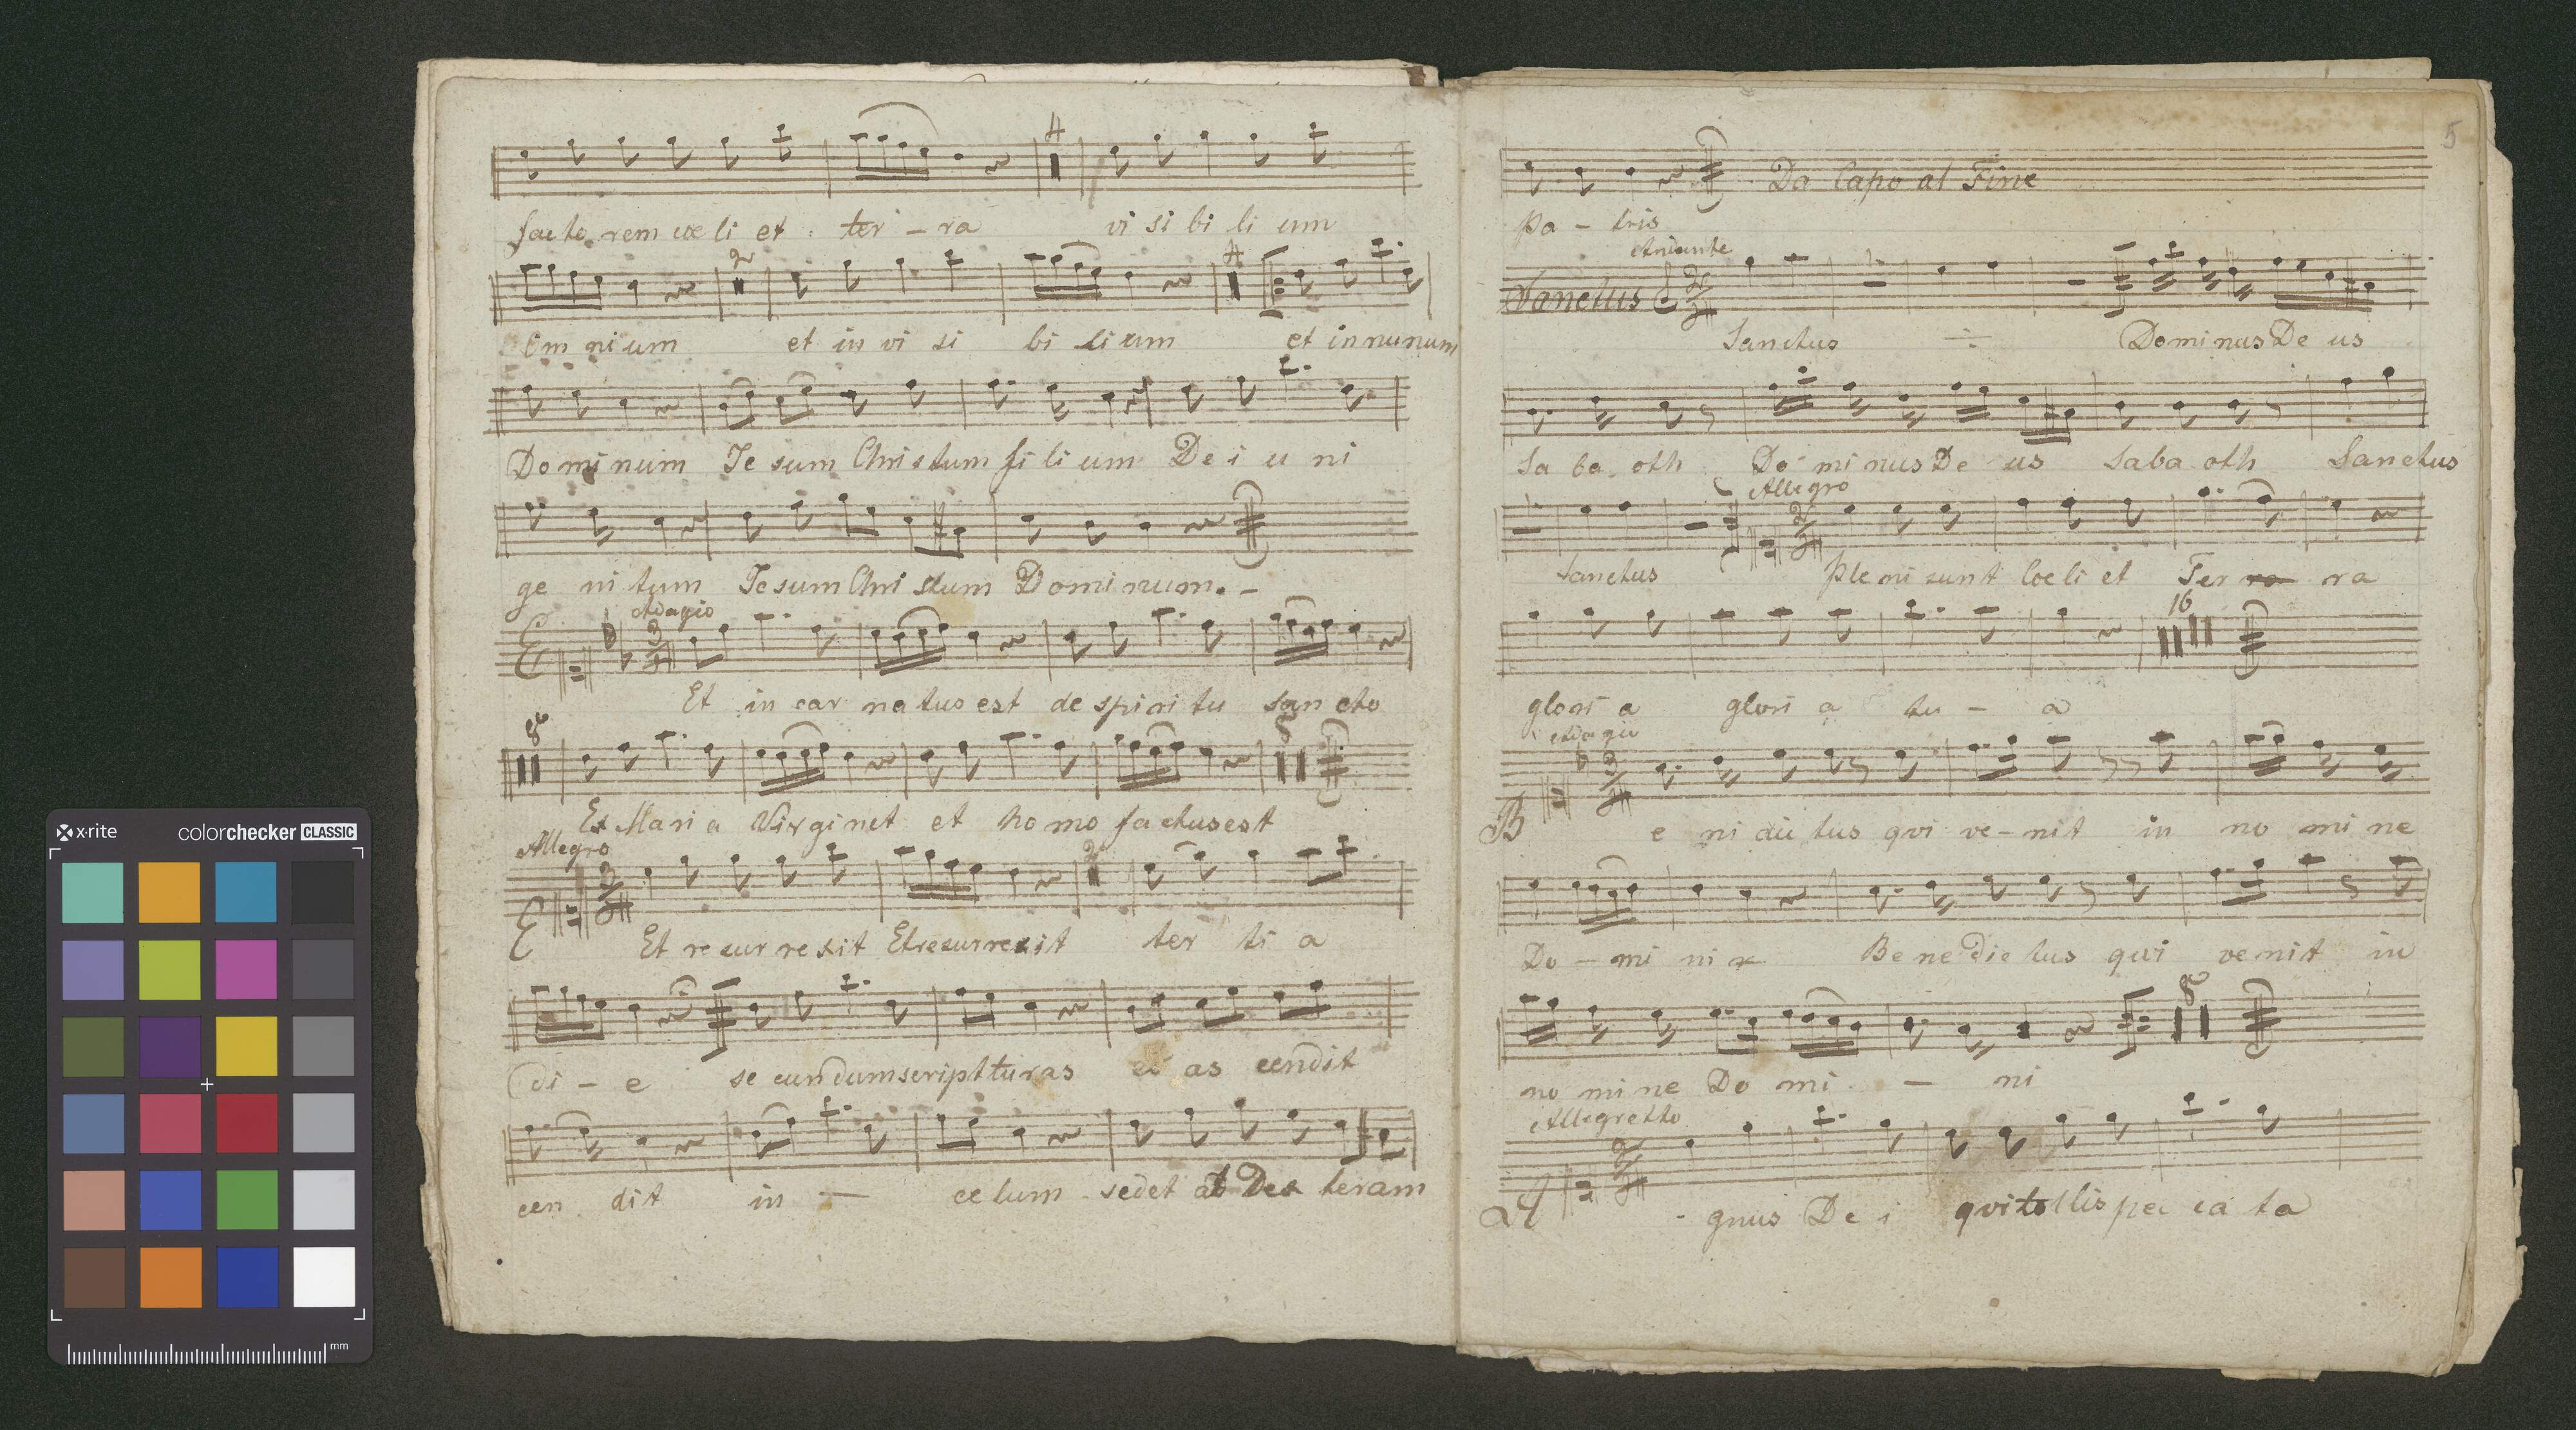 x-rite colorchecker CLASSIC
mm
4
facto rem coe li et ter - ra vi si bi li um
2 4
Om ni um et in vi si bi li um et in nunum
Do mi num Je sum Christum fi li um De i u ni
ge ni tum Jesum Christum Dominum. -
Adagio
3
Et in car natus est de spiri tu san cto
8 8
Ex Mari a Virginet et homo factus est
Allegro
2
Et re sur re xit Et resurrexit ter ti a
di - e se cundum scriptturas as cendit
cen dit in - ce lum sedet ad Dex teram
5
Da Capo al Fine
Pa - tris
Andante
Sanctus 2
Sanctus Dominus De us
Sa ba oth Do mi nus De us Saba oth Sanctus
Allegro
2
Sanctus Pleni sunt Coe li et Ter ra
16
glori a glori a tu - a
Adagio
3
B e ni dic tus qvi ve - nit in no mi ne
Do - mi ni Be ne dic tus qvi venit in
8
no mi ne Do mi - ni
Allegretto
2
A - gnus De i qvi tollis pec ca ta